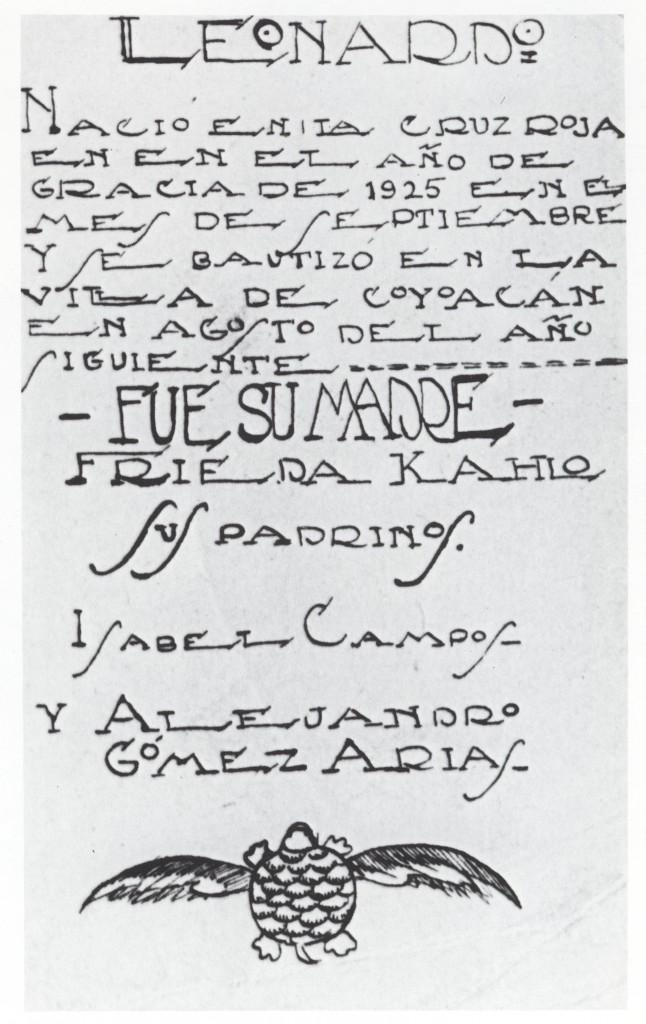 LEONARDO
NACIÓ EN LA CRUZ ROJA
EN EN EL AÑO DE
GRACIA DE 1925 EN E
MES DE SEPTIEMBRE
Y SE BAUTIZÓ EN LA
VILLA DE COYOACÁN
EN AGOSTO DEL AÑO
SIGUIENTE ----------
- FUE SU MADRE -
FRIEDA KAHLO
SUS PADRINOS.
ISABEL CAMPOS
Y ALEJANDRO
GÓMEZ ARIAS